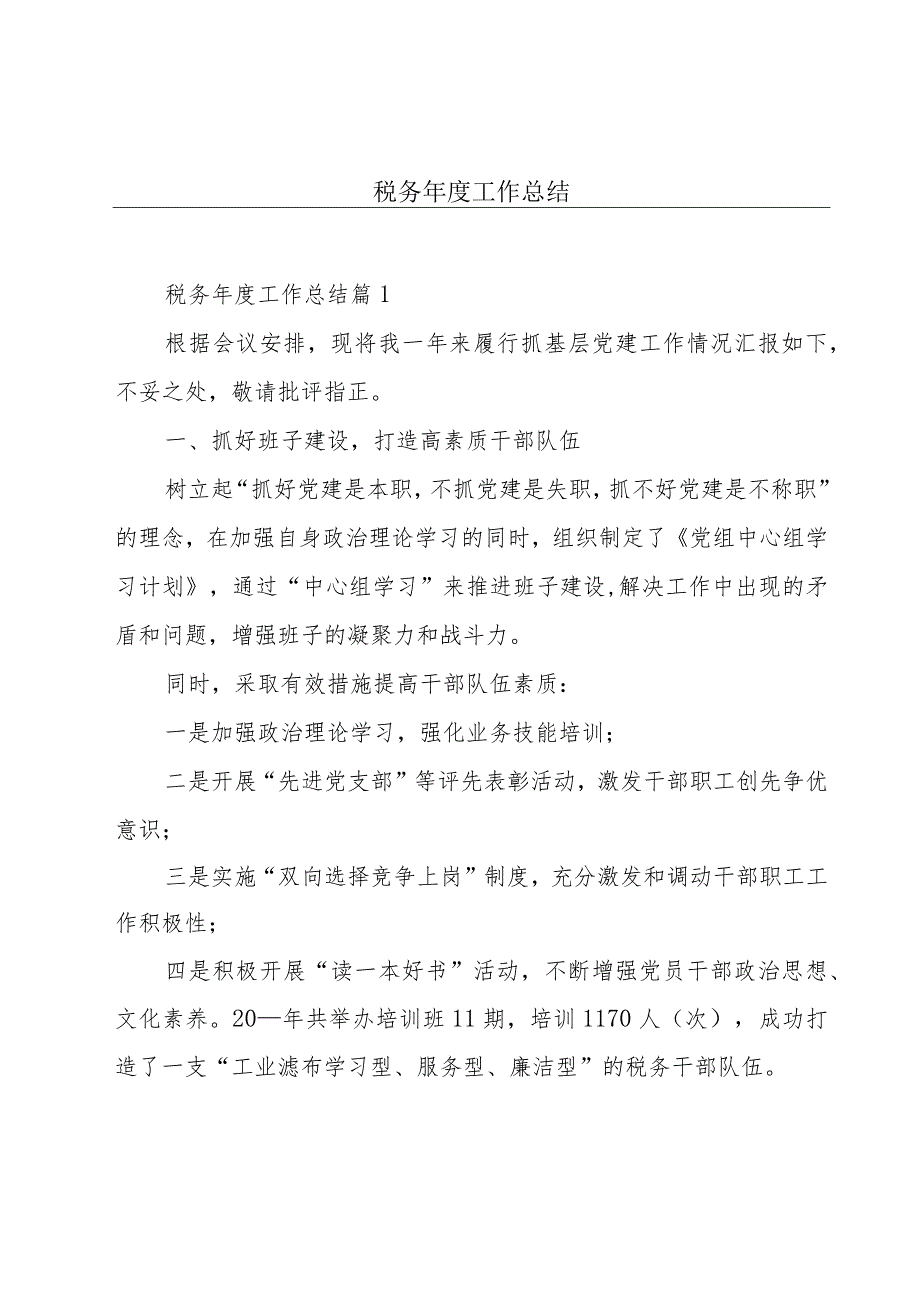 税务年度工作总结
税务年度工作总结篇1
根据会议安排，现将我一年来履行抓基层党建工作情况汇报如下，
不妥之处，敬请批评指正。
一、抓好班子建设，打造高素质干部队伍
树立起“抓好党建是本职,不抓党建是失职,抓不好党建是不称职”
的理念，在加强自身政治理论学习的同时，组织制定了《党组中心组学
习计划》，通过“中心组学习”来推进班子建设,解决工作中出现的矛
盾和问题，增强班子的凝聚力和战斗力。
同时，采取有效措施提高干部队伍素质：
一是加强政治理论学习，强化业务技能培训；
二是开展“先进党支部”等评先表彰活动，激发干部职工创先争优
意识；
三是实施“双向选择竞争上岗”制度，充分激发和调动干部职工工
作积极性；
四是积极开展“读一本好书”活动，不断增强党员干部政治思想、
文化素养。20—年共举办培训班11期，培训1170人（次），成功打
造了一支“工业滤布学习型、服务型、廉洁型”的税务干部队伍。